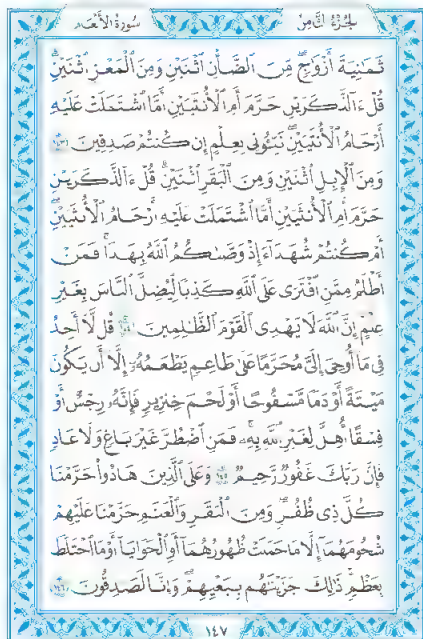 الجزء الثامن
سورة الأنعام
ثَمَٰنِيَةَ أَزْوَٰجٍۖ مِّنَ ٱلضَّأْنِ ٱثْنَيْنِ وَمِنَ ٱلْمَعْزِ ٱثْنَيْنِۗ
قُلْ ءَآلذَّكَرَيْنِ حَرَّمَ أَمِ ٱلْأُنثَيَيْنِ أَمَّا ٱشْتَمَلَتْ عَلَيْهِ
أَرْحَامُ ٱلْأُنثَيَيْنِۖ نَبِّـُٔونِى بِعِلْمٍ إِن كُنتُمْ صَٰدِقِينَ ١٤٣
وَمِنَ ٱلْإِبِلِ ٱثْنَيْنِ وَمِنَ ٱلْبَقَرِ ٱثْنَيْنِۗ قُلْ ءَآلذَّكَرَيْنِ
حَرَّمَ أَمِ ٱلْأُنثَيَيْنِ أَمَّا ٱشْتَمَلَتْ عَلَيْهِ أَرْحَامُ ٱلْأُنثَيَيْنِۖ
أَمْ كُنتُمْ شُهَدَآءَ إِذْ وَصَّىٰكُمُ ٱللَّهُ بِهَٰذَاۚ فَمَنْ
أَظْلَمُ مِمَّنِ ٱفْتَرَىٰ عَلَى ٱللَّهِ كَذِبًا لِّيُضِلَّ ٱلنَّاسَ بِغَيْرِ
عِلْمٍۗ إِنَّ ٱللَّهَ لَا يَهْدِى ٱلْقَوْمَ ٱلظَّٰلِمِينَ ١٤٤ قُل لَّآ أَجِدُ
فِى مَآ أُوحِىَ إِلَىَّ مُحَرَّمًا عَلَىٰ طَاعِمٍ يَطْعَمُهُۥٓ إِلَّآ أَن يَكُونَ
مَيْتَةً أَوْ دَمًا مَّسْفُوحًا أَوْ لَحْمَ خِنزِيرٍ فَإِنَّهُۥ رِجْسٌ أَوْ
فِسْقًا أُهِلَّ لِغَيْرِ ٱللَّهِ بِهِۦۚ فَمَنِ ٱضْطُرَّ غَيْرَ بَاغٍ وَلَا عَادٍ
فَإِنَّ رَبَّكَ غَفُورٌ رَّحِيمٌ ١٤٥ وَعَلَى ٱلَّذِينَ هَادُوا۟ حَرَّمْنَا
كُلَّ ذِى ظُفُرٍۖ وَمِنَ ٱلْبَقَرِ وَٱلْغَنَمِ حَرَّمْنَا عَلَيْهِمْ
شُحُومَهُمَآ إِلَّا مَا حَمَلَتْ ظُهُورُهُمَآ أَوِ ٱلْحَوَايَآ أَوْ مَا ٱخْتَلَطَ
بِعَظْمٍۚ ذَٰلِكَ جَزَيْنَٰهُم بِبَغْيِهِمْۖ وَإِنَّا لَصَٰدِقُونَ ١٤٦
١٤٧